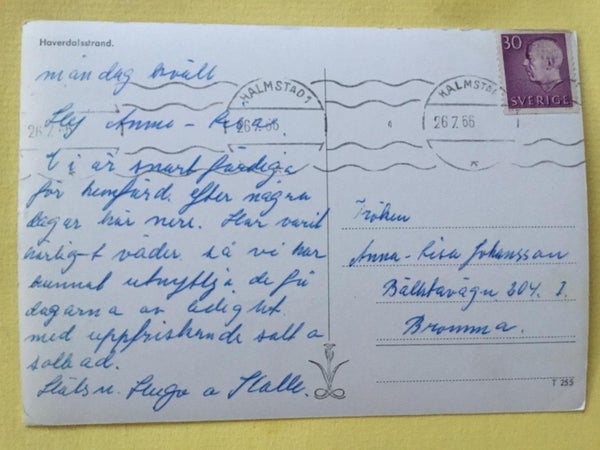 Haverdalsstrand.
måndag kväll
Hej Anna-Lisa.
Vi är snart färdiga
för hemfärd. efter några
dagar här nere. Har varit
härligt väder. så vi har
kunnat utnyttja de få
dagarna av ledight.
med uppfriskande salt o
solbad.
Hälsn. Hugo o Kalle.
30
SVERIGE
HALMSTAD 1
26.7.66
HALMSTAD
26.7.66
Fröken
Anna-Lisa Johansson
Bällstavägen 204. I.
Bromma.
T 255